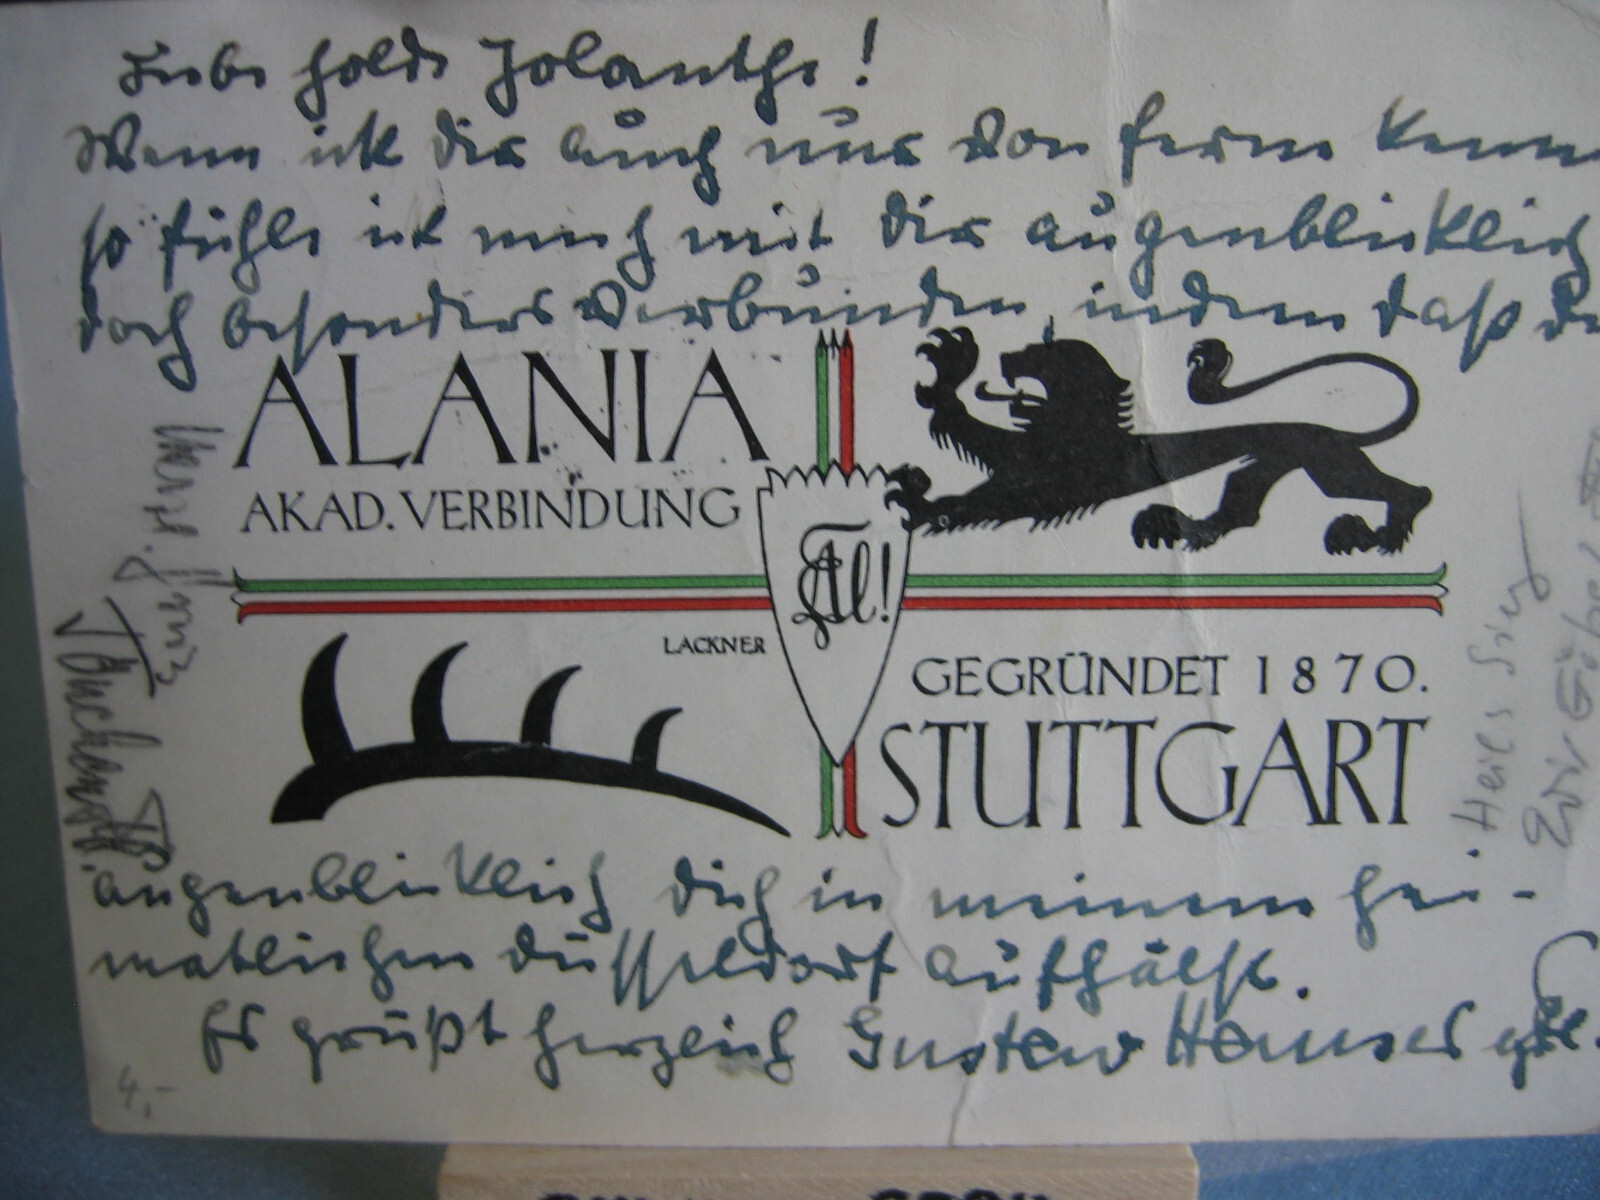 Liebe holde Jolanthe!
Wenn ick dir auch nur von ferne kenne
so fühle ick mich mit dir augenblicklich
doch besonders verbunden, indem daß du
ALANIA
AKAD. VERBINDUNG
Al!
LACKNER
GEGRÜNDET 1870.
STUTTGART
Heil & Sieg
augenblicklich dich in meinem hei-
matlichen Düsseldorf aufhälst.
Es grüßt herzlich Gustav
4,-